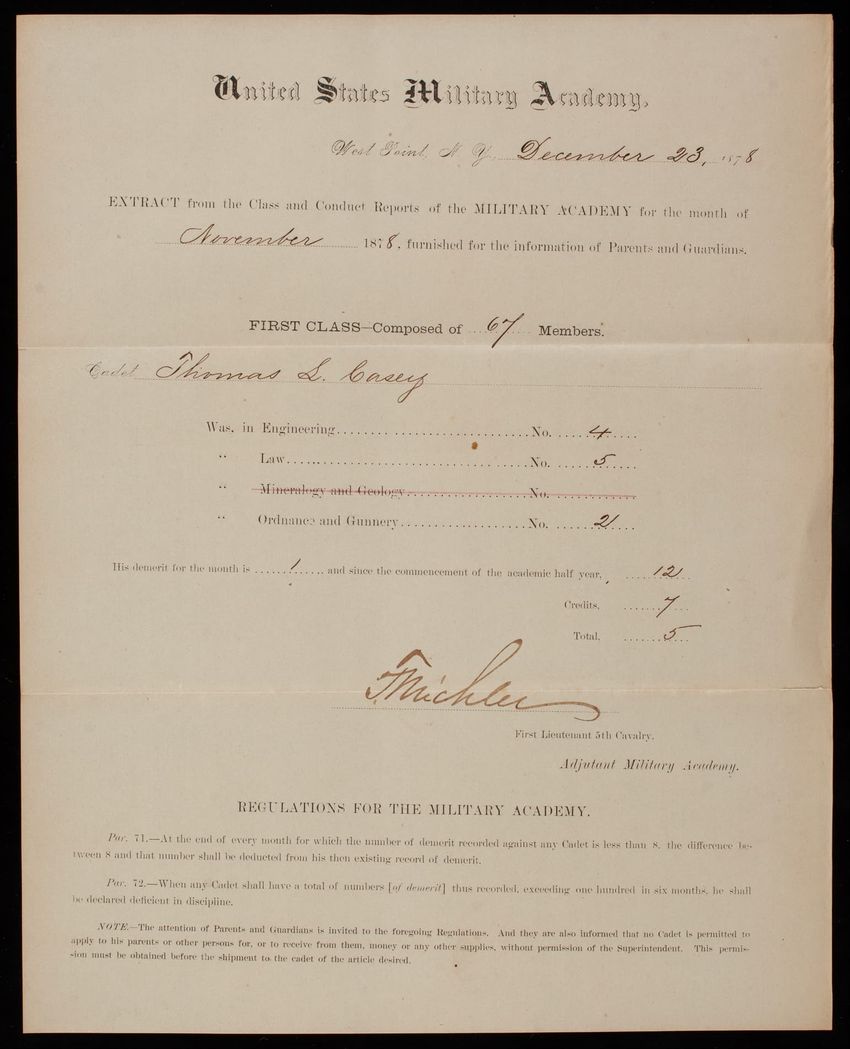 United States Military Academy,
West Point, N. Y., December 23, 1878
EXTRACT from the Class and Conduct Reports of the MILITARY ACADEMY for the month of
November 1878, furnished for the information of Parents and Guardians.
FIRST CLASS—Composed of 67 Members.
Cadet Thomas L. Casey
Was, in Engineering............................No. ......4.....
" Law....................................No. ......5.....
" Mineralogy and Geology..................No. ............
" Ordnance and Gunnery...................No. ......2....
His demerit for the month is ......1...... and since the commencement of the academic half year, .....12...
Credits, .......7...
Total, .......5...
F Michler
First Lieutenant 5th Cavalry,
Adjutant Military Academy.
REGULATIONS FOR THE MILITARY ACADEMY.
Par. 71.—At the end of every month for which the number of demerit recorded against any Cadet is less than 8, the difference be-
tween 8 and that number shall be deducted from his then existing record of demerit.
Par. 72.—When any Cadet shall have a total of numbers [of demerit] thus recorded, exceeding one hundred in six months, he shall
be declared deficient in discipline.
NOTE.—The attention of Parents and Guardians is invited to the foregoing Regulations. And they are also informed that no Cadet is permitted to
apply to his parents or other persons for, or to receive from them, money or any other supplies, without permission of the Superintendent. This permis-
sion must be obtained before the shipment to the cadet of the article desired.